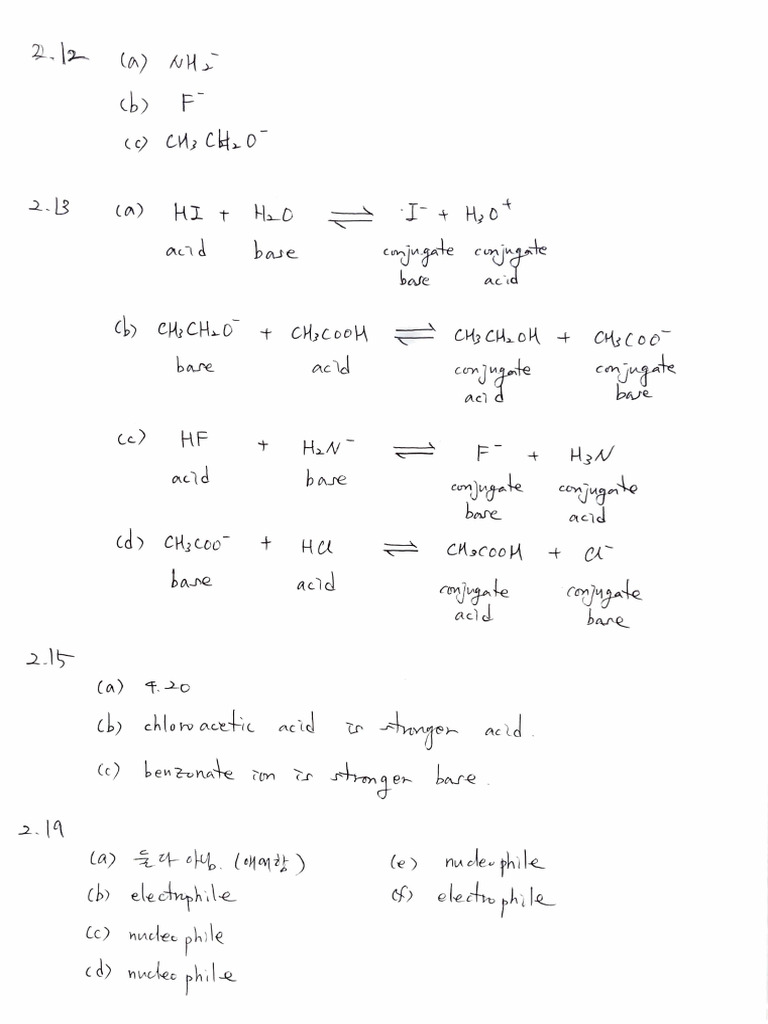 2.12 (a) NH₂⁻
(b) F⁻
(c) CH₃CH₂O⁻
2.13 (a) HI + H₂O ⇌ I⁻ + H₃O⁺
acid base conjugate base conjugate acid
(b) CH₃CH₂O⁻ + CH₃COOH ⇌ CH₃CH₂OH + CH₃COO⁻
base acid conjugate acid conjugate base
(c) HF + H₂N⁻ ⇌ F⁻ + H₃N
acid base conjugate base conjugate acid
(d) CH₃COO⁻ + HCl ⇌ CH₃COOH + Cl⁻
base acid conjugate acid conjugate base
2.15
(a) 4.20
(b) chloroacetic acid is stronger acid.
(c) benzonate ion is stronger base.
2.19
(a) 둘다 아님. (애매함) (e) nucleophile
(b) electrophile (f) electrophile
(c) nucleophile
(d) nucleophile